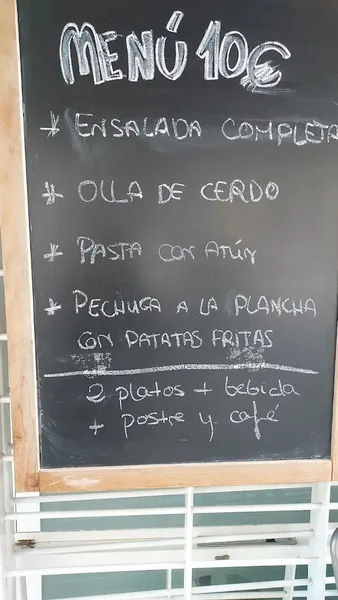 MENÚ 10€
* ENSALADA COMPLETA
* OLLA DE CERDO
* PASTA CON ATÚN
* PECHUGA A LA PLANCHA
CON PATATAS FRITAS
2 platos + bebida
+ postre y café